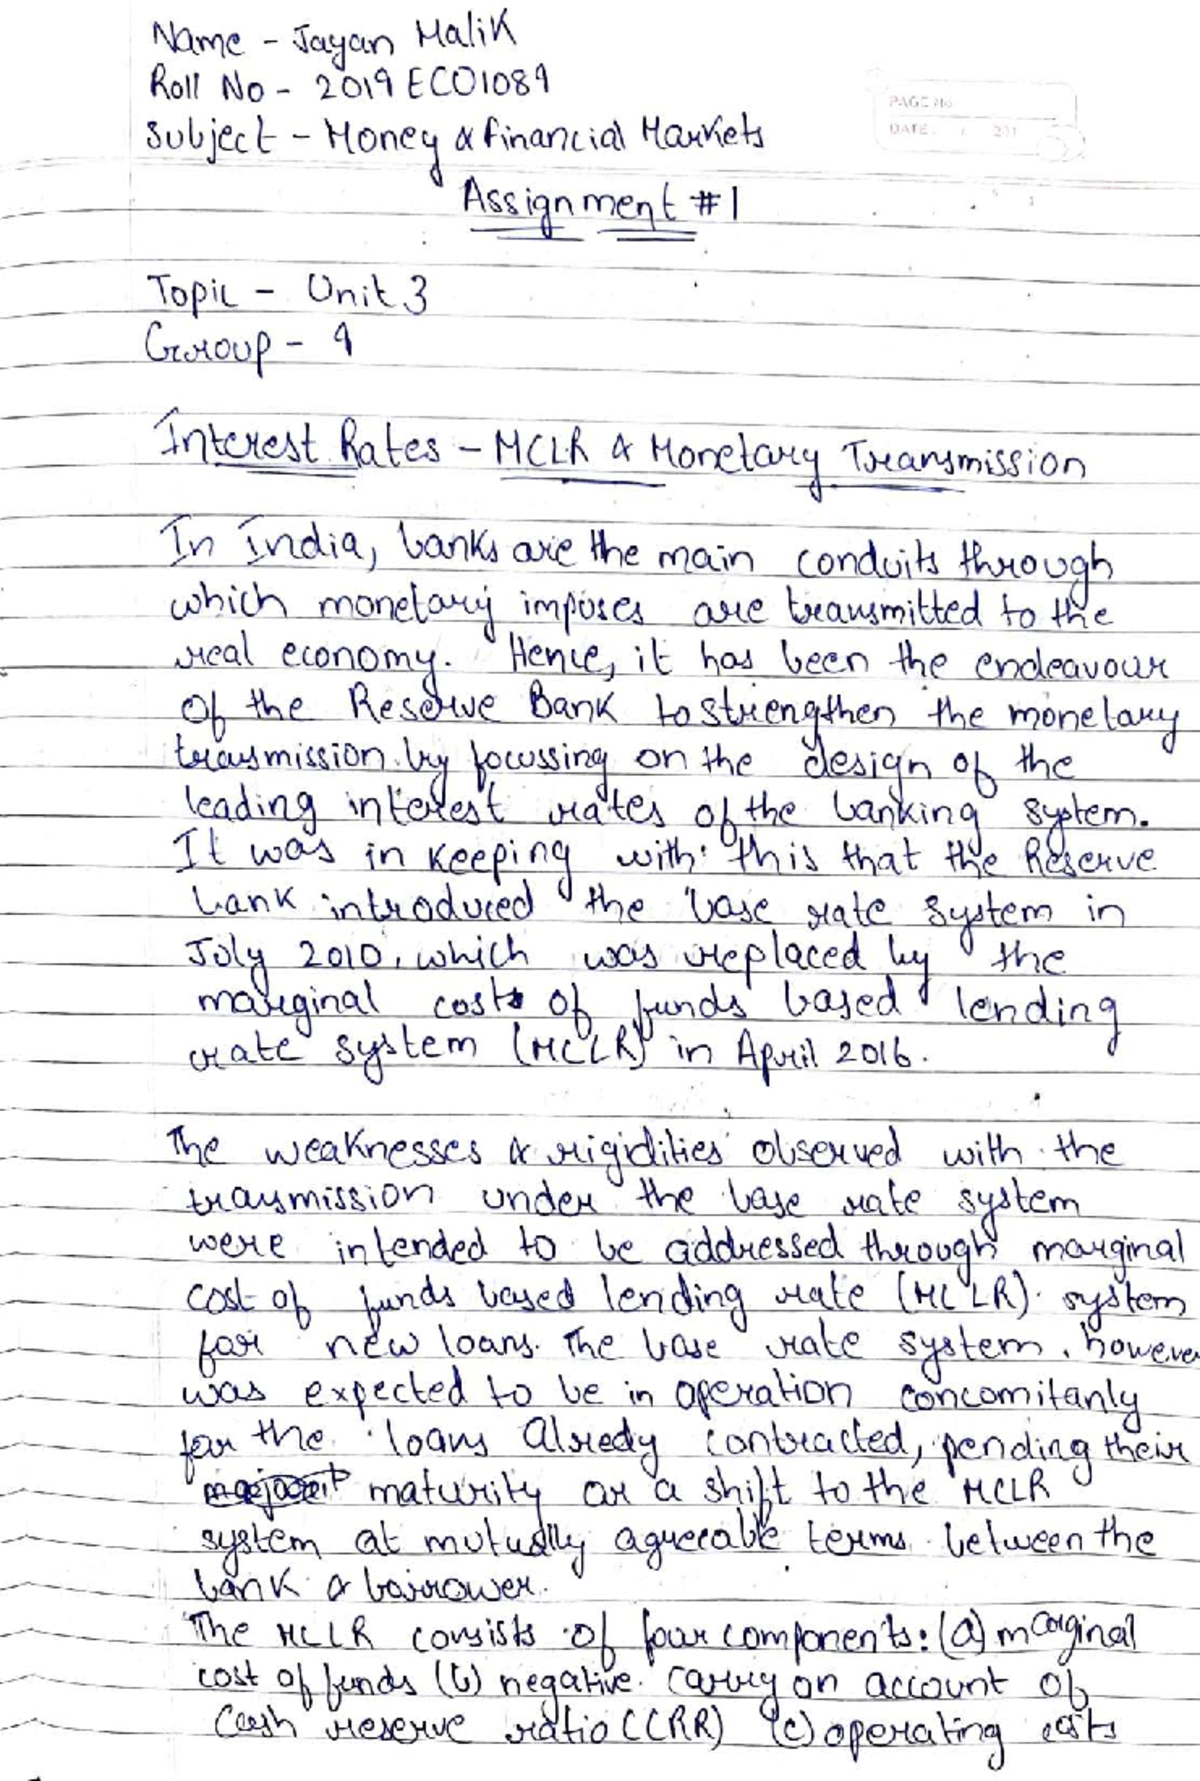 Name - Jayan Malik
Roll No - 2019ECO1089
Subject - Money & financial Markets
PAGE No.
DATE: / / 201
Assignment #1
Topic - Unit 3
Group - 9
Interest Rates - MCLR & Monetary Transmission
In India, banks are the main conduits through
which monetary impuses are transmitted to the
real economy. Hence, it has been the endeavour
of the Reserve Bank to strengthen the monetary
transmission by focussing on the design of the
leading interest rates of the banking system.
It was in keeping with this that the Reserve
bank introduced the base rate system in
July 2010, which was replaced by the
marginal cost of funds based lending
rate system (MCLR) in April 2016.
The weaknesses & rigidities observed with the
transmission under the base rate system
were intended to be addressed through marginal
cost of funds based lending rate (MCLR) system
for new loans. The base rate system, however
was expected to be in operation concomitanly
for the loans Alredy contracted, pending their
maturity or a shift to the MCLR
system at mutually agreeable terms between the
bank & borrower.
The MCLR consists of four components: (a) marginal
cost of funds (b) negative carry on account of
Cash reserve ratio (CRR) (c) operating costs